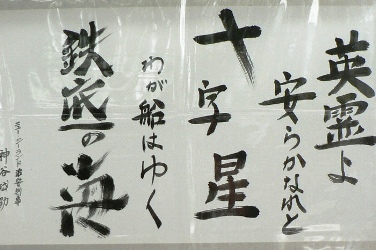 英霊よ
安らかなれと
十字星
わが船はゆく
鉄底の海
神谷